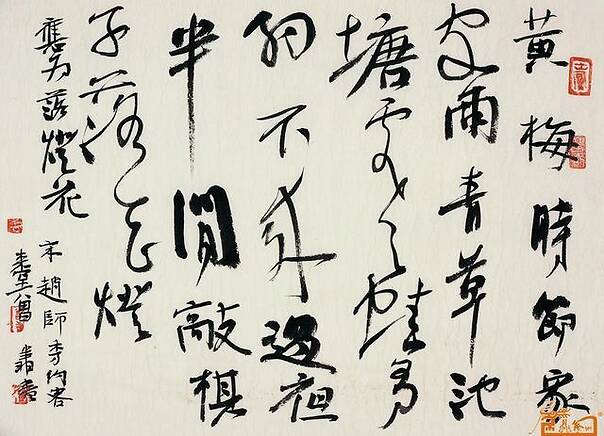 黄梅時節家
家雨青草池
塘處處蛙有
約不來過夜
半閒敲棋
子落花燈
應为落燈花
宋趙師秀約客